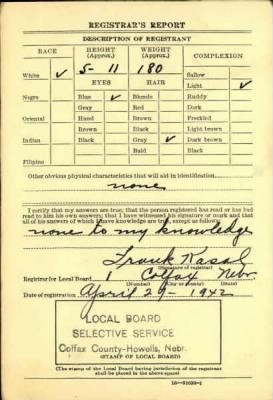 REGISTRAR'S REPORT
DESCRIPTION OF REGISTRANT
RACE HEIGHT (Approx.) WEIGHT (Approx.) COMPLEXION
5-11 180 Sallow
White ✓ EYES HAIR Light ✓
Negro Blue ✓ Blonde Ruddy
Gray Red Dark
Oriental Hazel Brown Freckled
Brown Black Light brown
Indian Black Gray ✓ Dark brown
Bald Black
Filipino
Other obvious physical characteristics that will aid in identification
none
I certify that my answers are true; that the person registered has read or has had
read to him his own answers; that I have witnessed his signature or mark and that
all of his answers of which I have knowledge are true, except as follows:
none to my knowledge
Frank Kasal
(Signature of registrar)
Registrar for Local Board 1 Colfax Nebr.
(Number) (City or county) (State)
Date of registration April 27-1942
LOCAL BOARD
SELECTIVE SERVICE
Colfax County-Howells, Nebr.
(STAMP OF LOCAL BOARD)
(The stamp of the Local Board having jurisdiction of the registrant
shall be placed in the above space)